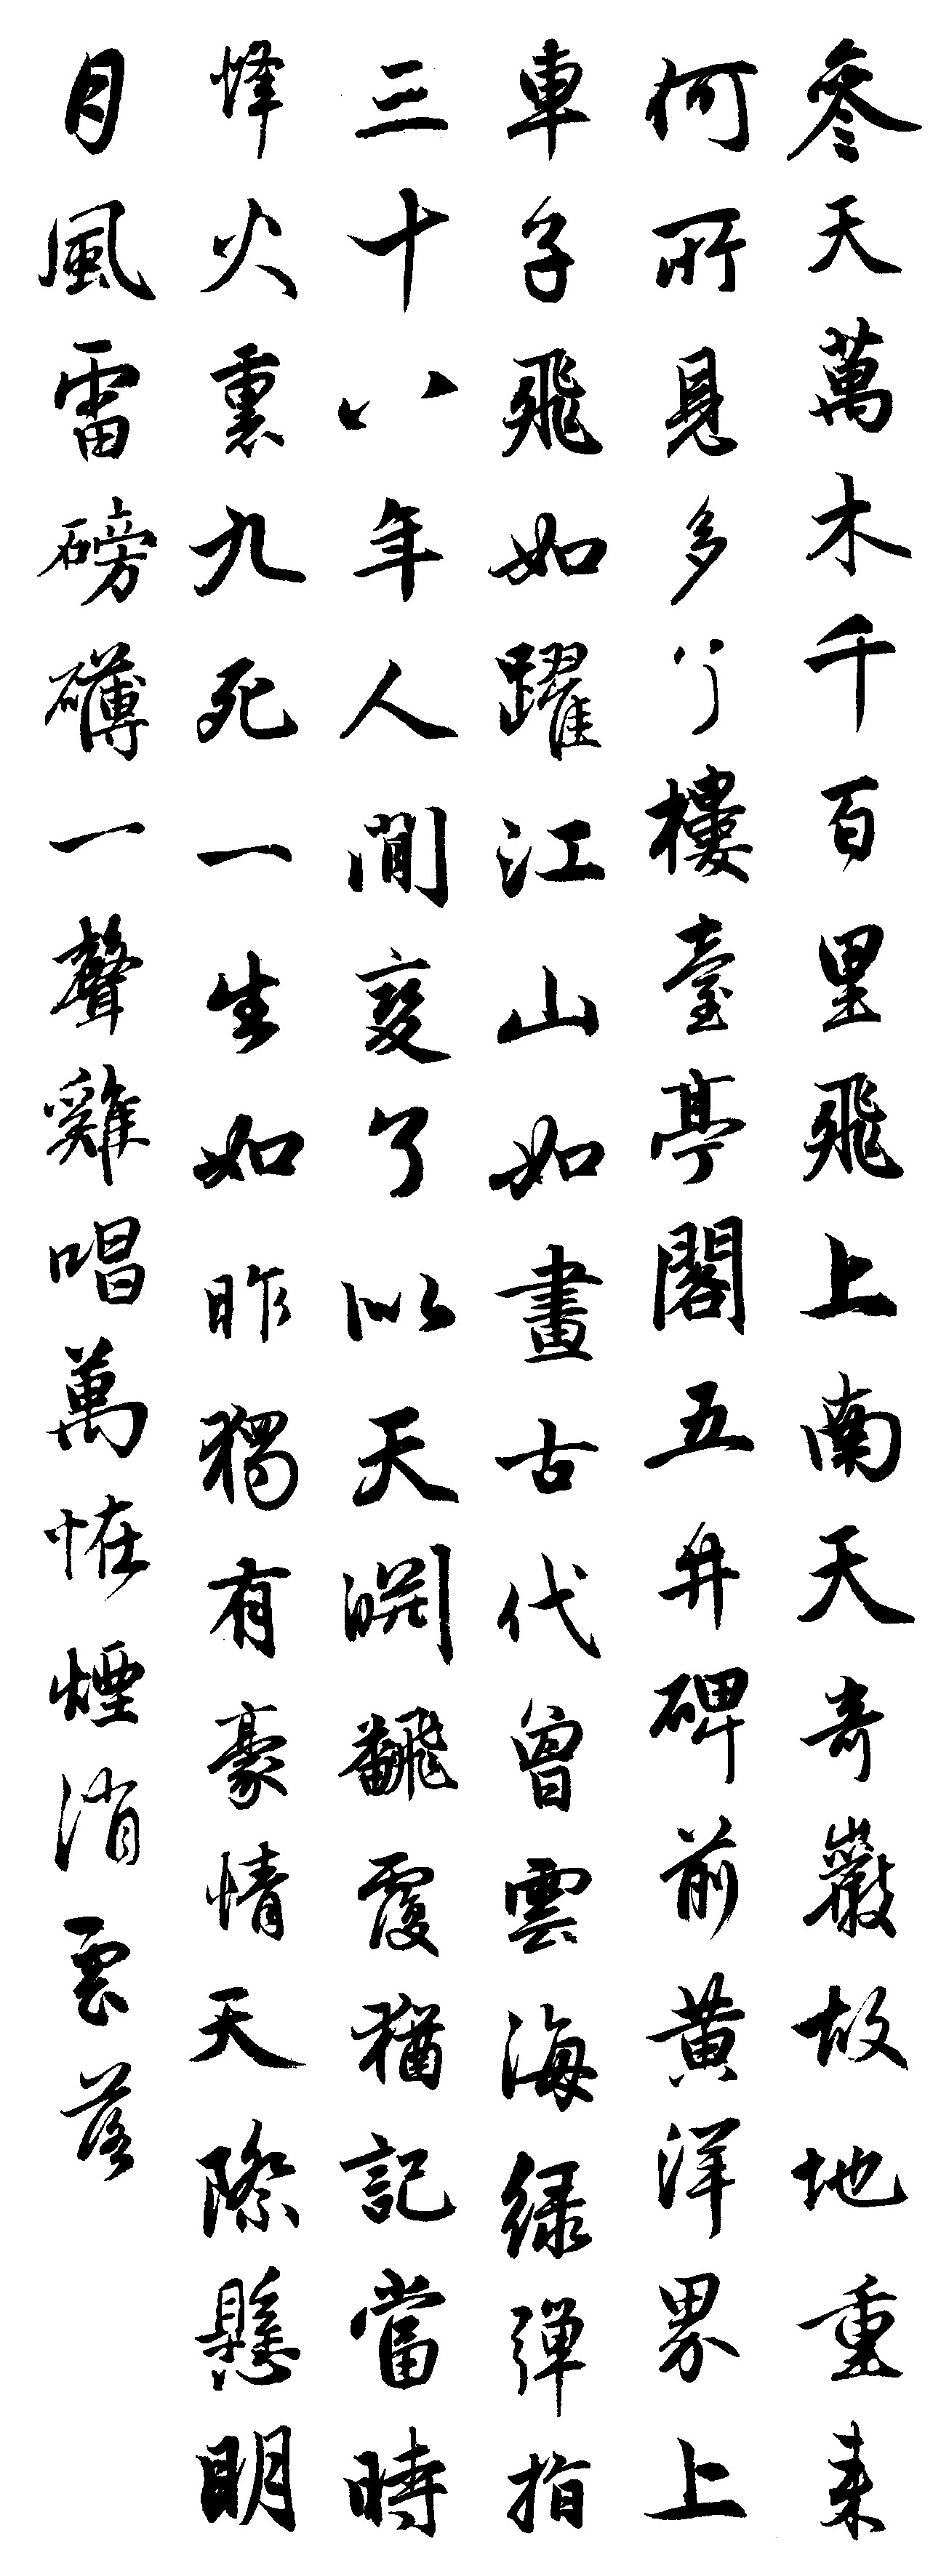 參天萬木千百里飛上南天奇巖故地重來
何所見多了樓臺亭閣五井碑前黃洋界上
車子飛如躍江山如畫古代曾雲海綠彈指
三十八年人間變了似天淵翻覆猶記當時
烽火裏九死一生如昨獨有豪情天際懸明
月風雷磅礴一聲雞唱萬怪煙消雲落